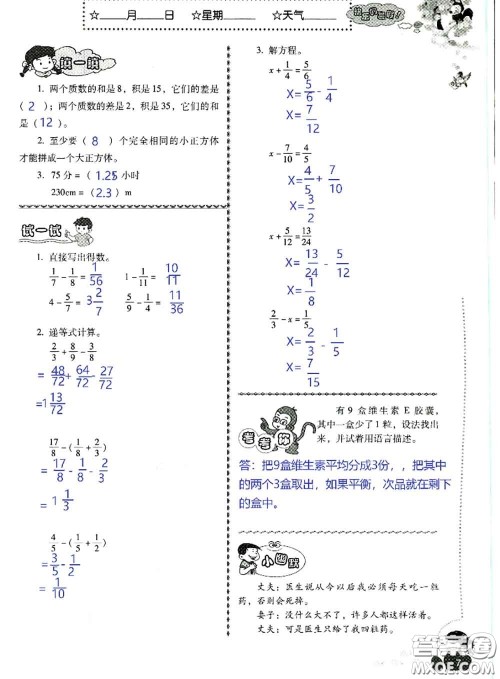 ☆____月____日 ☆星期____ ☆天气____
填一填
1. 两个质数的和是8，积是15，它们的差是
（2）；两个质数的差是2，积是35，它们的和
是（12）。
2. 至少要（8）个完全相同的小正方体
才能拼成一个大正方体。
3. 75分＝（1.25）小时
230cm＝（2.3）m
试一试
1. 直接写出得数。
1/7－1/8＝1/56 1－1/11＝10/11
4－5/7＝3 2/7 5/9－1/4＝11/36
2. 递等式计算。
2/3＋8/9－3/8
＝48/72＋64/72－27/72
＝1 13/72
17/8－(1/8＋2/3)
＝17/8－1/8－2/3
＝1 1/3
4/5－(1/5＋1/2)
＝3/5－1/2
＝1/10
3. 解方程。
x＋1/4＝5/6
X＝5/6－1/4
X＝7/12
x－7/10＝4/5
X＝4/5＋7/10
X＝3/2
x＋5/12＝13/24
X＝13/24－5/12
X＝1/8
2/3－x＝1/5
X＝2/3－1/5
X＝7/15
考考你
有9盒维生素E胶囊，
其中一盒少了1粒，设法找出
来，并试着用语言描述。
答：把9盒维生素平均分成3份，，把其中
的两个3盒取出，如果平衡，次品就在剩下
的盒中。
小幽默
丈夫：医生说从今以后我必须每天吃一粒
药，否则会死掉。
妻子：没什么大不了，许多人都这样活着。
丈夫：可是医生只给了我四粒药。